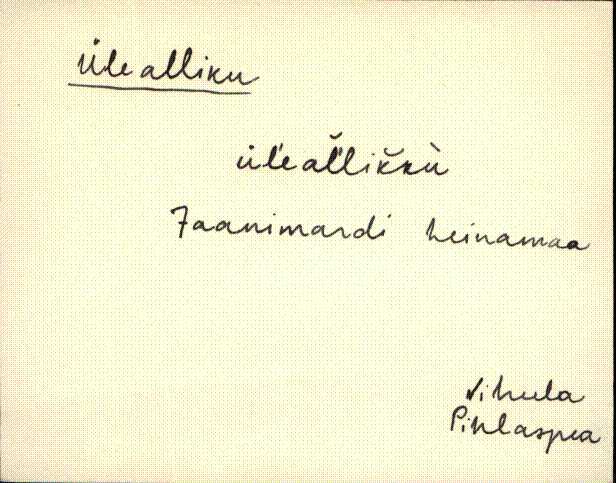 Ülealliku
üĺeaľlikkù
Jaanimardi heinamaa
Vihula
Pihlaspea